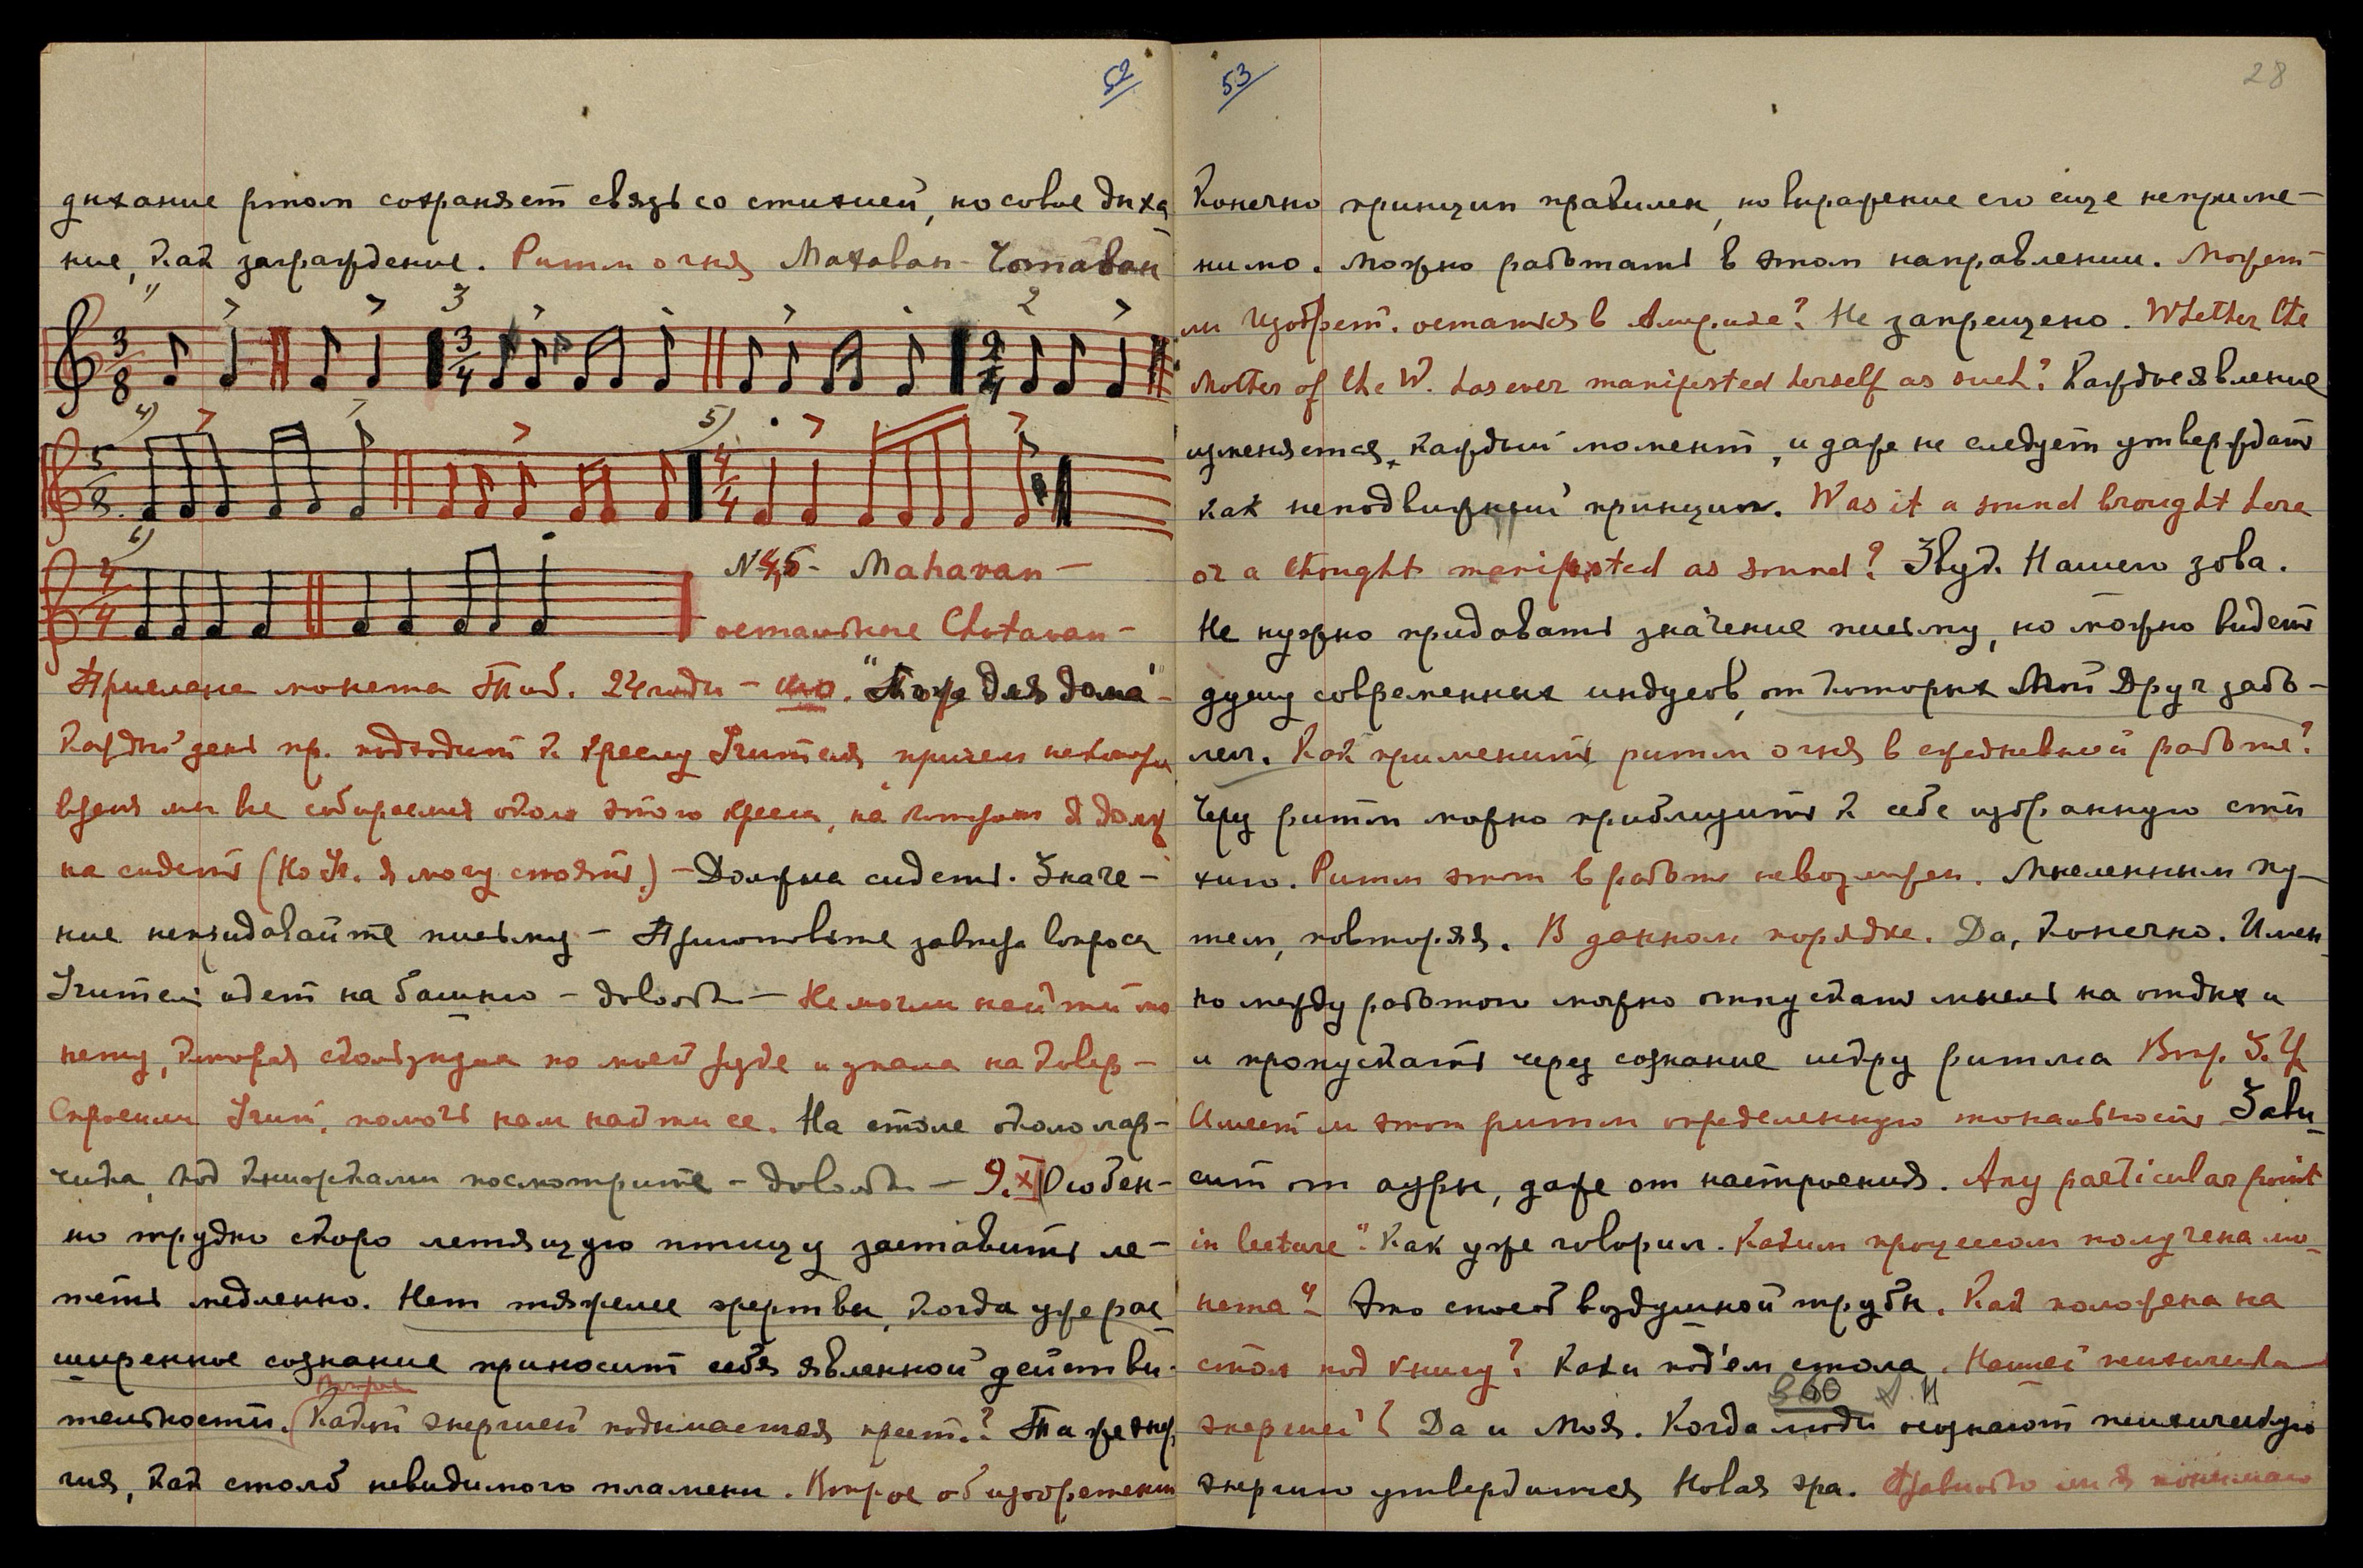 52
дыхание ртом сохраняет связь со стихией, носовое дыха-
ние, как заграждение. Ритм огня Махаван - Чотаван
1) 3 2
3/8 3/4 2/4
4) 5)
5/8 4/4
6)
4/4
№ 4,5 - Mahavan -
остальные Chotavan -
Прислана монета Тиб. 24 годи - "Тоже для дома" -
Каждый день пр. подходит к креслу Учителя причем некоторое
время мы все собираемся около этого кресла, на котором я долж
на сидеть (Но Уч. я могу стоять.) - Должна сидеть. Значе-
ние не придавайте письму - Приготовьте завтра вопросы
Учитель идет на башню - довольно - Не могли найти мо
нету, которая скользнула по моей руке и упала на ковер -
Спросили Учит. помочь нам найти ее. На столе около лар-
чика, под книжками посмотрите - довольно - 9.XI Особен-
но трудно скоро летящую птицу заставить ле-
теть медленно. Нет тяжелее жертвы, когда уже рас
ширенное сознание приносит себя явленной действи-
тельности. Какой энергией подымается крест.? Та же энер
гия, как столб невидимого пламени. Вопрос об изобретении
53
28
Конечно принцип правилен, но выражение его еще неприме-
нимо. Можно работать в этом направлении. Может
ли изобрет. остаться в Америке? Не запрещено. Whether the
Mother of the W. has ever manifested herself as such? Каждое явление
изменяется каждый момент, и даже не следует утверждать
как неподвижный принцип. Was it a sound brought here
or a thought manifested as sound? Звук Нашего зова.
Не нужно придавать значение письму, но можно видеть
душу современных индусов, от которых Мой Друг забо-
лел. Как применить ритм огня в ежедневной работе?
Через ритм можно приблизить к себе избранную сти
хию. Ритм этот в работе невозможен. Мысленным пу-
тем, повторяя. В данном порядке. Да, конечно. Имен-
но между работою можно отпускать мысль на отдых и
и пропускать через сознание искру ритма Вопр.
Имеет ли этот ритм определенную тональность Зави-
сит от ауры, даже от настроения. Any particular point
in lecture". Как уже говорил. Каким процессом получена мо-
нета" - Это способ воздушной трубы. Как положена на
стол под книгу? Как и под'ем стола. Нашей психической
энергией? Да и Моя. Когда люди осознают психическую
энергию утвердится Новая эра. Правильно ли я понимаю